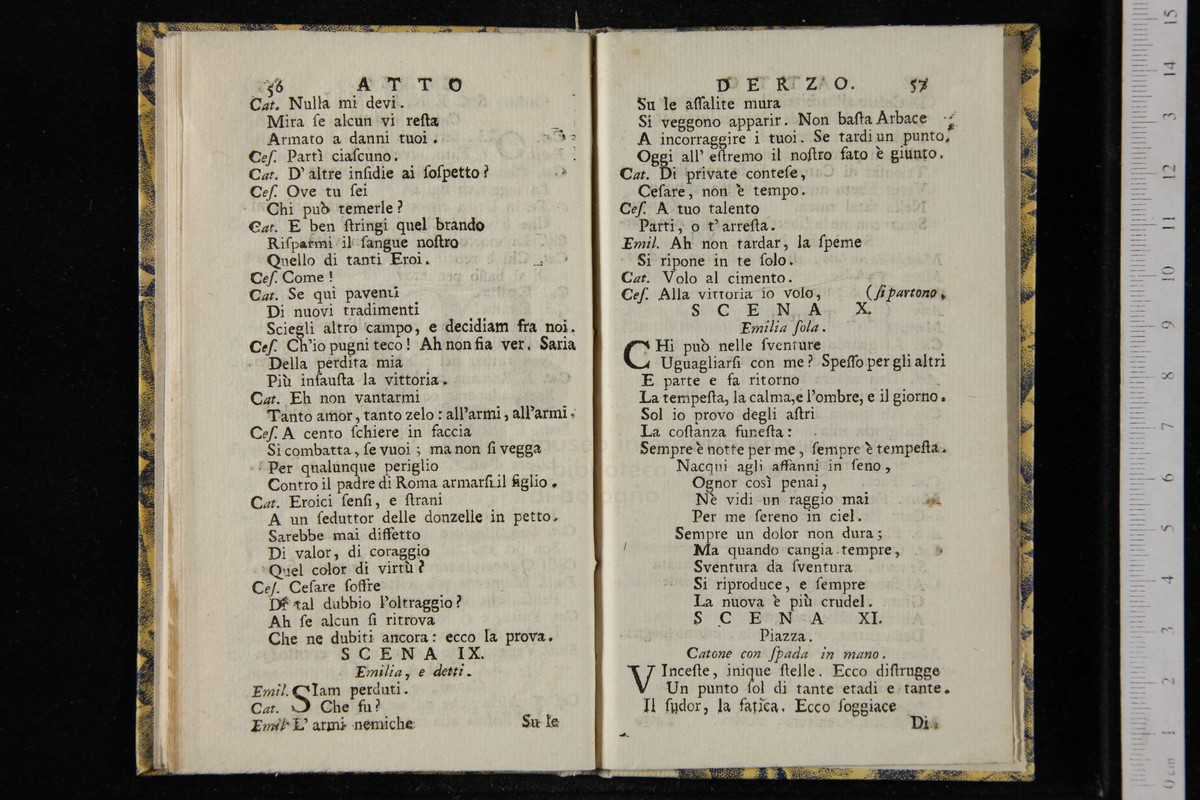 56 ATTO
Cat. Nulla mi devi.
Mira ſe alcun vi reſta
Armato a danni tuoi.
Ceſ. Partì ciaſcuno.
Cat. D'altre inſidie ai ſoſpetto?
Ceſ. Ove tu ſei
Chi può temerle?
Cat. E ben ſtringi quel brando
Riſparmi il ſangue noſtro
Quello di tanti Eroi.
Ceſ. Come!
Cat. Se qui paventi
Di nuovi tradimenti
Sciegli altro campo, e decidiam fra noi.
Ceſ. Ch'io pugni teco! Ah non fia ver. Saria
Della perdita mia
Più infauſta la vittoria.
Cat. Eh non vantarmi
Tanto amor, tanto zelo: all'armi, all'armi.
Ceſ. A cento ſchiere in faccia
Si combatta, ſe vuoi; ma non ſi vegga
Per qualunque periglio
Contro il padre di Roma armarſi il figlio.
Cat. Eroici ſenſi, e ſtrani
A un ſeduttor delle donzelle in petto.
Sarebbe mai diffetto
Di valor, di coraggio
Quel color di virtù?
Ceſ. Ceſare ſoffre
Di tal dubbio l'oltraggio?
Ah ſe alcun ſi ritrova
Che ne dubiti ancora: ecco la prova.
SCENA IX.
Emilia, e detti.
Emil. SIam perduti.
Cat. Che fu?
Emil L' armi nemiche
Su le
DERZO. 57
Su le aſſalite mura
Si veggono apparir. Non baſta Arbace
A incorraggire i tuoi. Se tardi un punto,
Oggi all' eſtremo il noſtro fato è giunto.
Cat. Di private conteſe,
Ceſare, non è tempo.
Ceſ. A tuo talento
Parti, o t'arreſta.
Emil. Ah non tardar, la ſpeme
Si ripone in te ſolo.
Cat. Volo al cimento.
Ceſ. Alla vittoria io volo, (ſi partono.
SCENA X.
Emilia ſola.
CHi può nelle ſventure
Uguagliarſi con me? Speſſo per gli altri
E parte e fa ritorno
La tempeſta, la calma,e l'ombre, e il giorno.
Sol io provo degli aſtri
La coſtanza funeſta:
Sempre è notte per me, ſempre è tempeſta.
Nacqui agli affanni in ſeno,
Ognor così penai,
Nè vidi un raggio mai
Per me ſereno in ciel.
Sempre un dolor non dura;
Ma quando cangia tempre,
Sventura da ſventura
Si riproduce, e ſempre
La nuova è più crudel.
SCENA XI.
Piazza.
Catone con ſpada in mano.
VInceſte, inique ſtelle. Ecco diſtrugge
Un punto ſol di tante etadi e tante.
Il ſudor, la fatica. Ecco ſoggiace
Di